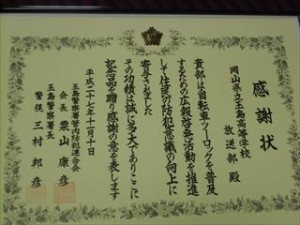 感謝状
岡山県立玉島高等学校
放送部殿
貴部は自転車ツーロックを普及
するための広報啓発活動を推進
して住民の防犯意識の向上に
寄与されました
その功績は誠に多大でありここに
記念品を贈り感謝の意を表します
平成二十七年十一月十日
玉島警察署管内防犯連合会
会長 栗山康彦
玉島警察署長
警視 三村邦彦